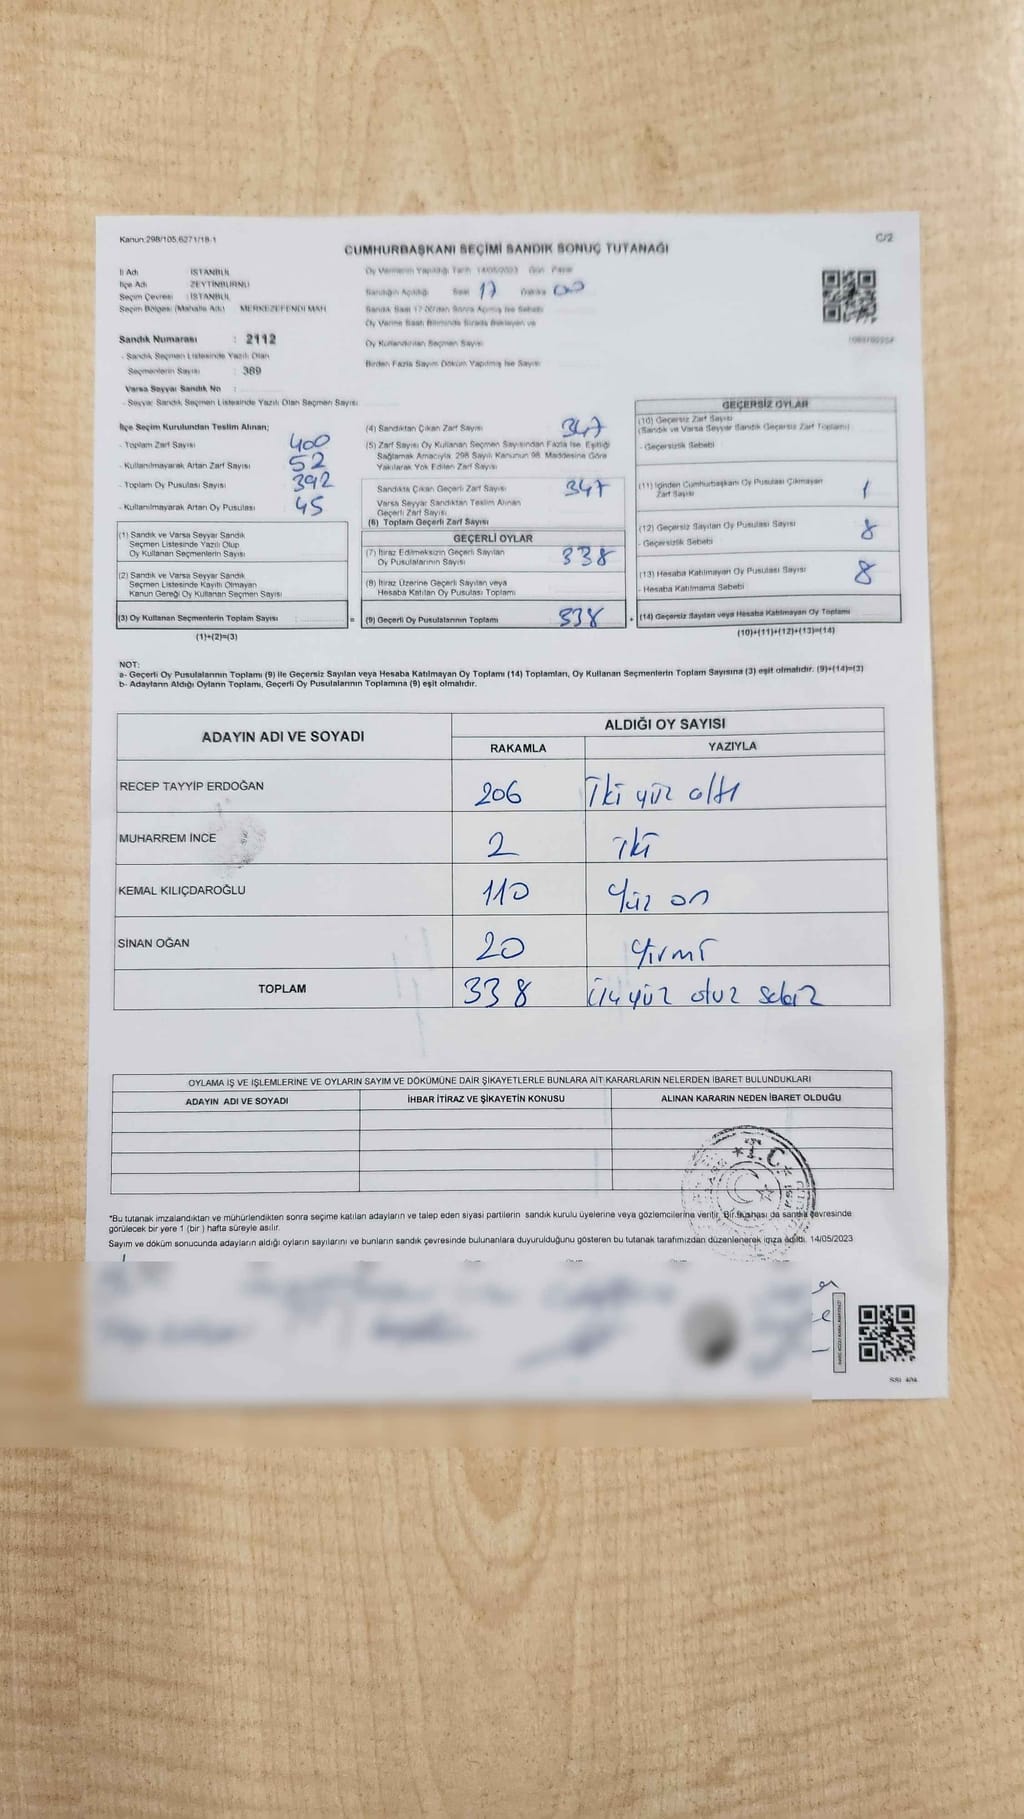 Kanun:298/105,6271/18-1
C/2
CUMHURBAŞKANI SEÇİMİ SANDIK SONUÇ TUTANAĞI
İl Adı : İSTANBUL
İlçe Adı : ZEYTİNBURNU
Seçim Çevresi : İSTANBUL
Seçim Bölgesi (Mahalle Adı) : MERKEZEFENDİ MAH
Sandık Numarası : 2112
- Sandık Seçmen Listesinde Yazılı Olan
Seçmenlerin Sayısı : 389
Varsa Seyyar Sandık No :
- Seyyar Sandık Seçmen Listesinde Yazılı Olan Seçmen Sayısı
Oy Vermenin Yapıldığı Tarih 14/05/2023 Gün Pazar
Sandığın Açıldığı Saat 17 Dakika 00
Sandık Saat 17:00'den Sonra Açılmış İse Sebebi
Oy Verme Saati Bitiminde Sırada Bekleyen ve
Oy Kullandırılan Seçmen Sayısı
Birden Fazla Sayım Döküm Yapılmış İse Sayısı
İlçe Seçim Kurulundan Teslim Alınan;
- Toplam Zarf Sayısı 400
- Kullanılmayarak Artan Zarf Sayısı 52
- Toplam Oy Pusulası Sayısı 392
- Kullanılmayarak Artan Oy Pusulası 45
(1) Sandık ve Varsa Seyyar Sandık
Seçmen Listesinde Yazılı Olup
Oy Kullanan Seçmenlerin Sayısı
(2) Sandık ve Varsa Seyyar Sandık
Seçmen Listesinde Kayıtlı Olmayan
Kanun Gereği Oy Kullanan Seçmen Sayısı
(3) Oy Kullanan Seçmenlerin Toplam Sayısı
(1)+(2)=(3)
=
(4) Sandıktan Çıkan Zarf Sayısı 347
(5) Zarf Sayısı Oy Kullanan Seçmen Sayısından Fazla İse, Eşitliği
Sağlamak Amacıyla, 298 Sayılı Kanunun 98. Maddesine Göre
Yakılarak Yok Edilen Zarf Sayısı
Sandıkta Çıkan Geçerli Zarf Sayısı 347
Varsa Seyyar Sandıktan Teslim Alınan
Geçerli Zarf Sayısı
(6) Toplam Geçerli Zarf Sayısı
GEÇERLİ OYLAR
(7) İtiraz Edilmeksizin Geçerli Sayılan
Oy Pusulalarının Sayısı 338
(8) İtiraz Üzerine Geçerli Sayılan veya
Hesaba Katılan Oy Pusulası Toplamı
(9) Geçerli Oy Pusulalarının Toplamı 338
+
GEÇERSİZ OYLAR
(10) Geçersiz Zarf Sayısı
(Sandık ve Varsa Seyyar Sandık Geçersiz Zarf Toplamı)
- Geçersizlik Sebebi
(11) İçinden Cumhurbaşkanı Oy Pusulası Çıkmayan
Zarf Sayısı 1
(12) Geçersiz Sayılan Oy Pusulası Sayısı 8
- Geçersizlik Sebebi
(13) Hesaba Katılmayan Oy Pusulası Sayısı 8
- Hesaba Katılmama Sebebi
(14) Geçersiz Sayılan veya Hesaba Katılmayan Oy Toplamı
(10)+(11)+(12)+(13)=(14)
NOT:
a- Geçerli Oy Pusulalarının Toplamı (9) ile Geçersiz Sayılan veya Hesaba Katılmayan Oy Toplamı (14) Toplamları, Oy Kullanan Seçmenlerin Toplam Sayısına (3) eşit olmalıdır. (9)+(14)=(3)
b- Adayların Aldığı Oyların Toplamı, Geçerli Oy Pusulalarının Toplamına (9) eşit olmalıdır.
ADAYIN ADI VE SOYADI
ALDIĞI OY SAYISI
RAKAMLA YAZIYLA
RECEP TAYYİP ERDOĞAN 206 İki yüz altı
MUHARREM İNCE 2 iki
KEMAL KILIÇDAROĞLU 110 Yüz on
SİNAN OĞAN 20 Yirmi
TOPLAM 338 üçyüz otuz sekiz
OYLAMA İŞ VE İŞLEMLERİNE VE OYLARIN SAYIM VE DÖKÜMÜNE DAİR ŞİKAYETLERLE BUNLARA AİT KARARLARIN NELERDEN İBARET BULUNDUKLARI
ADAYIN ADI VE SOYADI İHBAR İTİRAZ VE ŞİKAYETİN KONUSU ALINAN KARARIN NEDEN İBARET OLDUĞU
T.C.
*Bu tutanak imzalandıktan ve mühürlendikten sonra seçime katılan adayların ve talep eden siyasi partilerin sandık kurulu üyelerine veya gözlemcilerine verilir. Bir nüshası da sandık çevresinde
görülecek bir yere 1 (bir) hafta süreyle asılır.
Sayım ve döküm sonucunda adayların aldığı oyların sayılarını ve bunların sandık çevresinde bulunanlara duyurulduğunu gösteren bu tutanak tarafımızdan düzenlenerek imza edildi. 14/05/2023